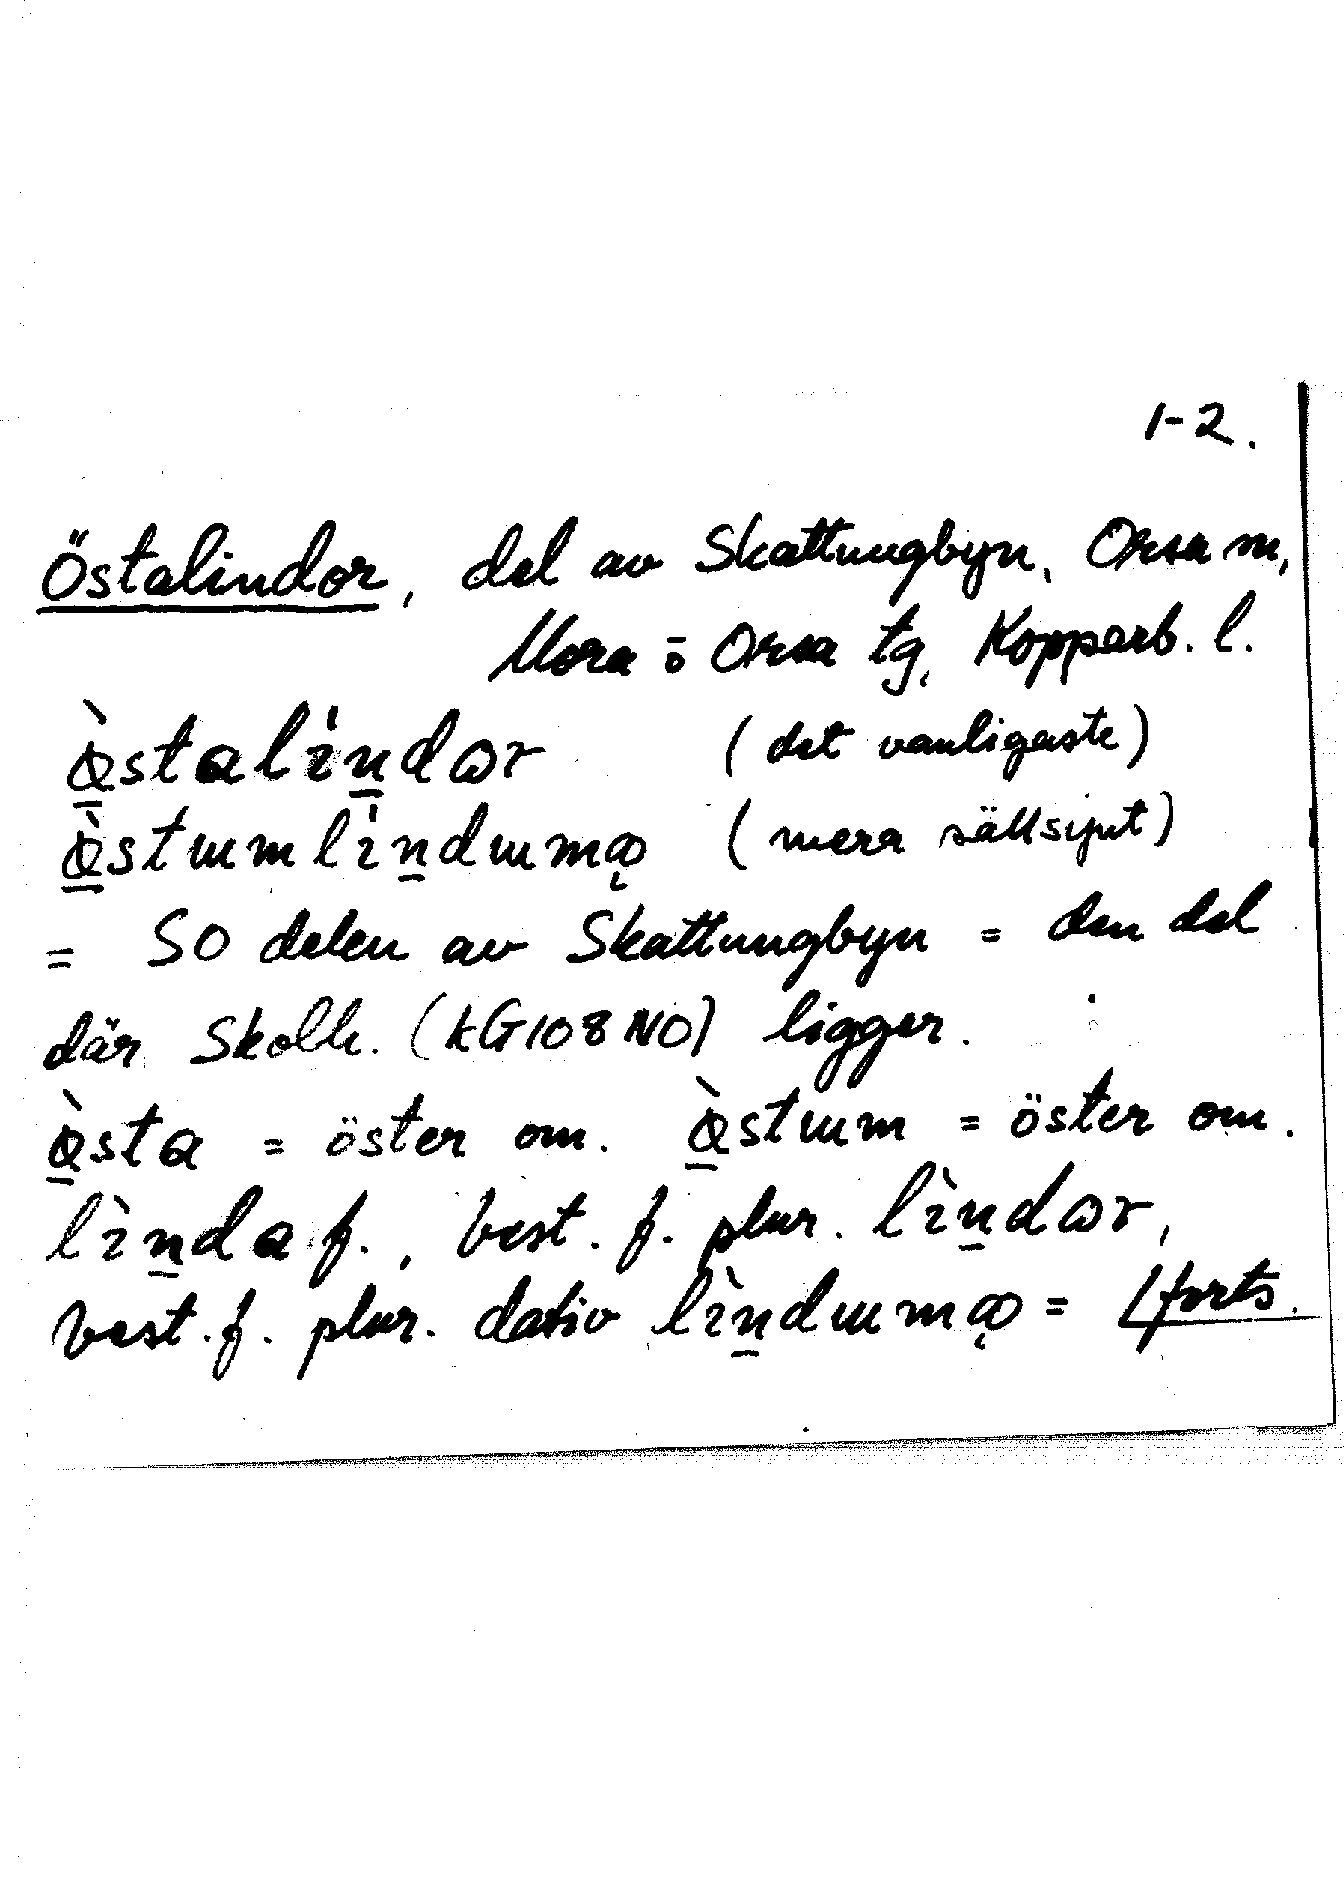 1-2.
Östalindor, del av Skattungbyn, Orsa m,
Mora ō Orsa tg, Kopparb. l.
(det vanligaste)
(mera sällsynt)
= SO delen av Skattungbyn = den del
där Skolh. (KG108NO) ligger.
= öster om. = öster om.
lìn̲da f., best. f. plur. lìn̲dɷr,
best. f. plur. dativ = /forts.